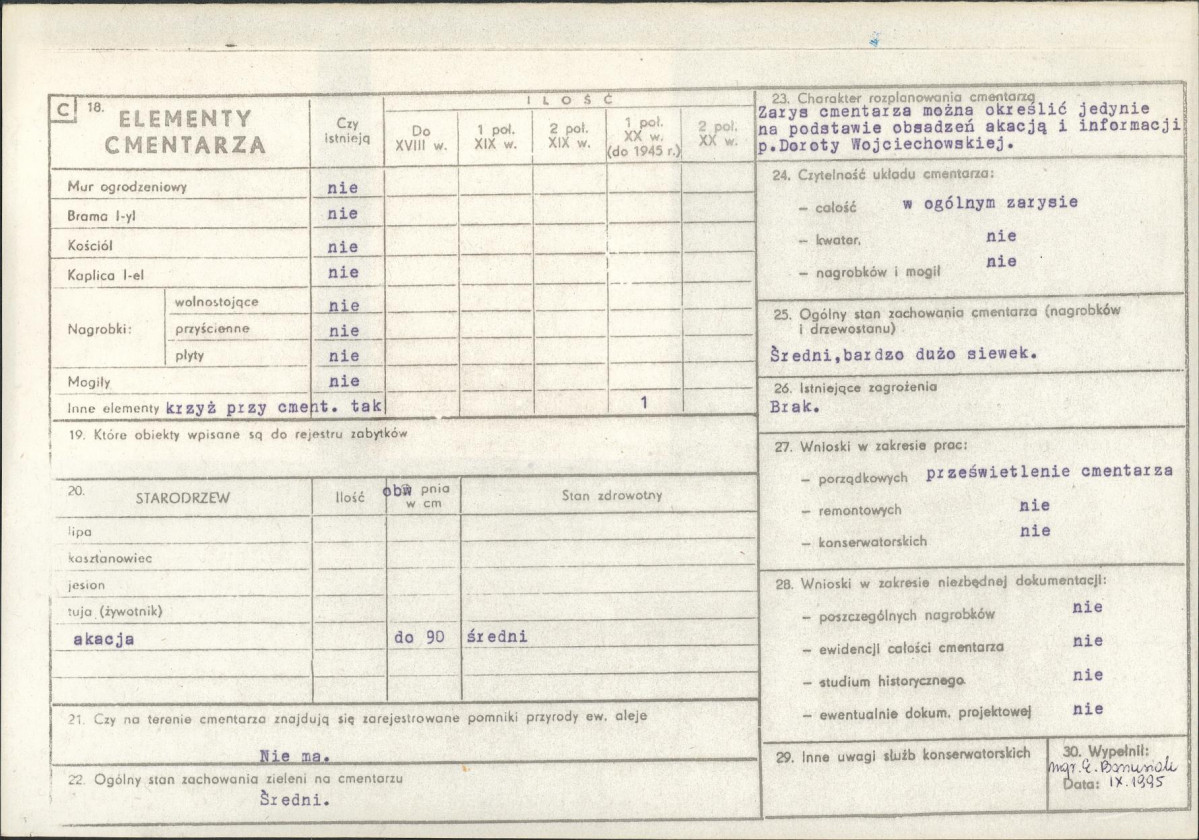 C 18. ELEMENTY CMENTARZA
Czy istnieją
ILOŚĆ
Do XVIII w.
1 poł. XIX w.
2 poł. XIX w.
1 poł. XX w. (do 1945 r.)
2 poł. XX w.
Mur ogrodzeniowy nie
Brama l-yl nie
Kościół nie
Kaplica l-el nie
Nagrobki:
wolnostojące nie
przyścienne nie
płyty nie
Mogiły nie
Inne elementy krzyż przy cment. tak 1
19. Które obiekty wpisane są do rejestru zabytków
20. STARODRZEW Ilość obw pnia w cm Stan zdrowotny
lipa
kasztanowiec
jesion
tuja (żywotnik)
akacja do 90 średni
21. Czy na terenie cmentarza znajdują się zarejestrowane pomniki przyrody ew. aleje
Nie ma.
22. Ogólny stan zachowania zieleni na cmentarzu
Średni.
23. Charakter rozplanowania cmentarza
Zarys cmentarza można określić jedynie
na podstawie obsadzeń akacją i informacji
p.Doroty Wojciechowskiej.
24. Czytelność układu cmentarza:
— całość w ogólnym zarysie
— kwater, nie
— nagrobków i mogił nie
25. Ogólny stan zachowania cmentarza (nagrobków
i drzewostanu)
Średni,bardzo dużo siewek.
26. Istniejące zagrożenia
Brak.
27. Wnioski w zakresie prac:
— porządkowych prześwietlenie cmentarza
— remontowych nie
— konserwatorskich nie
28. Wnioski w zakresie niezbędnej dokumentacji:
— poszczególnych nagrobków nie
— ewidencji całości cmentarza nie
— studium historycznego nie
— ewentualnie dokum. projektowej nie
29. Inne uwagi służb konserwatorskich
30. Wypełnił:
mgr.
Data: IX.1995